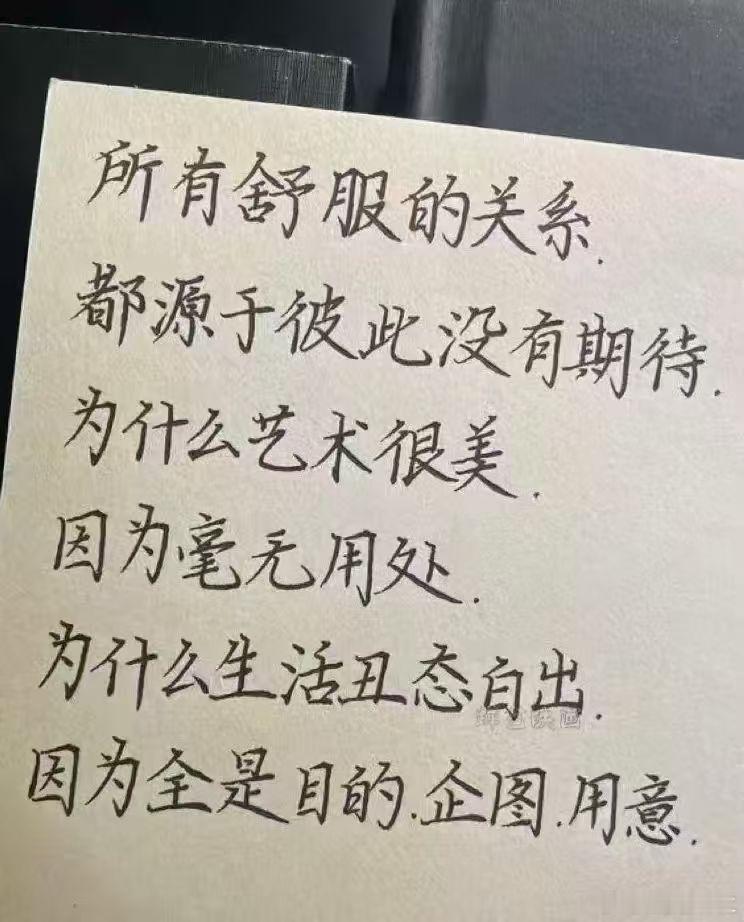 所有舒服的关系.
都源于彼此没有期待.
为什么艺术很美.
因为毫无用处.
为什么生活丑态白出.
因为全是目的.企图.用意.